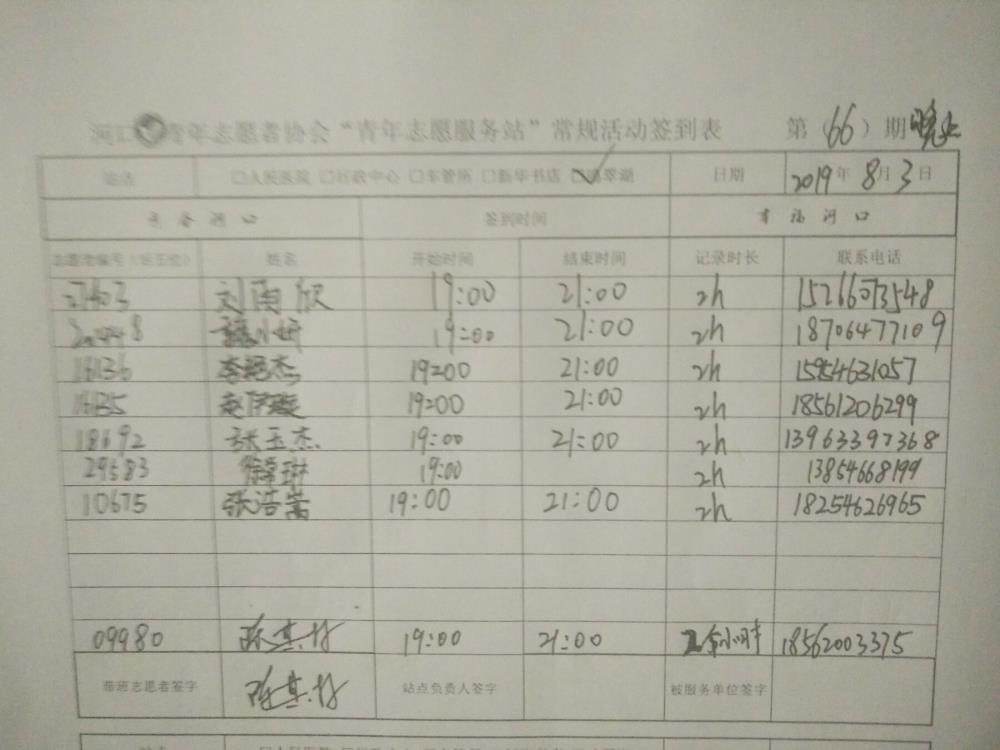 河口 青年志愿者协会“青年志愿服务站”常规活动签到表 第(66)期 晚上
站点 □人民医院 □行政中心 □车管所 □新华书店 ☑翡翠湖 日期 2019年8月3日
河口 签到时间 幸福河口
志愿者编号 姓名 开始时间 结束时间 记录时长 联系电话
27403 刘雨欣 19:00 21:00 2h 15266073548
20448 19:00 21:00 2h 18706477109
16136 李绍杰 19:00 21:00 2h 15954631057
赵伊璇 19:00 21:00 2h 18561206299
18692 张玉杰 19:00 21:00 2h 13963397368
29583 徐常琳 19:00 2h 13854668199
10675 张浩嵩 19:00 21:00 2h 18254626965
09980 陈其 19:00 21:00 小时 18562003375
带班志愿者签字 陈其 站点负责人签字 被服务单位签字